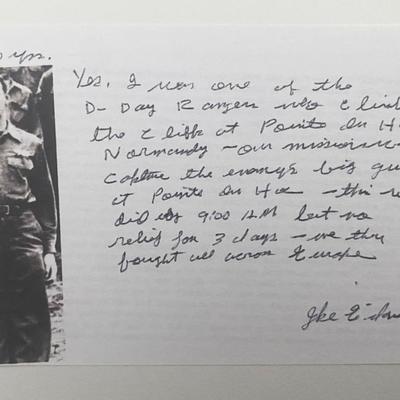 yrs.
Yes, I was one of the
D-Day Rangers who
the cliffs at Pointe Du
Normandy - our mission
Capture the enemys big
at Pointe du Hoe - this
did by 9:00 AM but no
relief for 3 days - we then
fought all across Europe
Ike